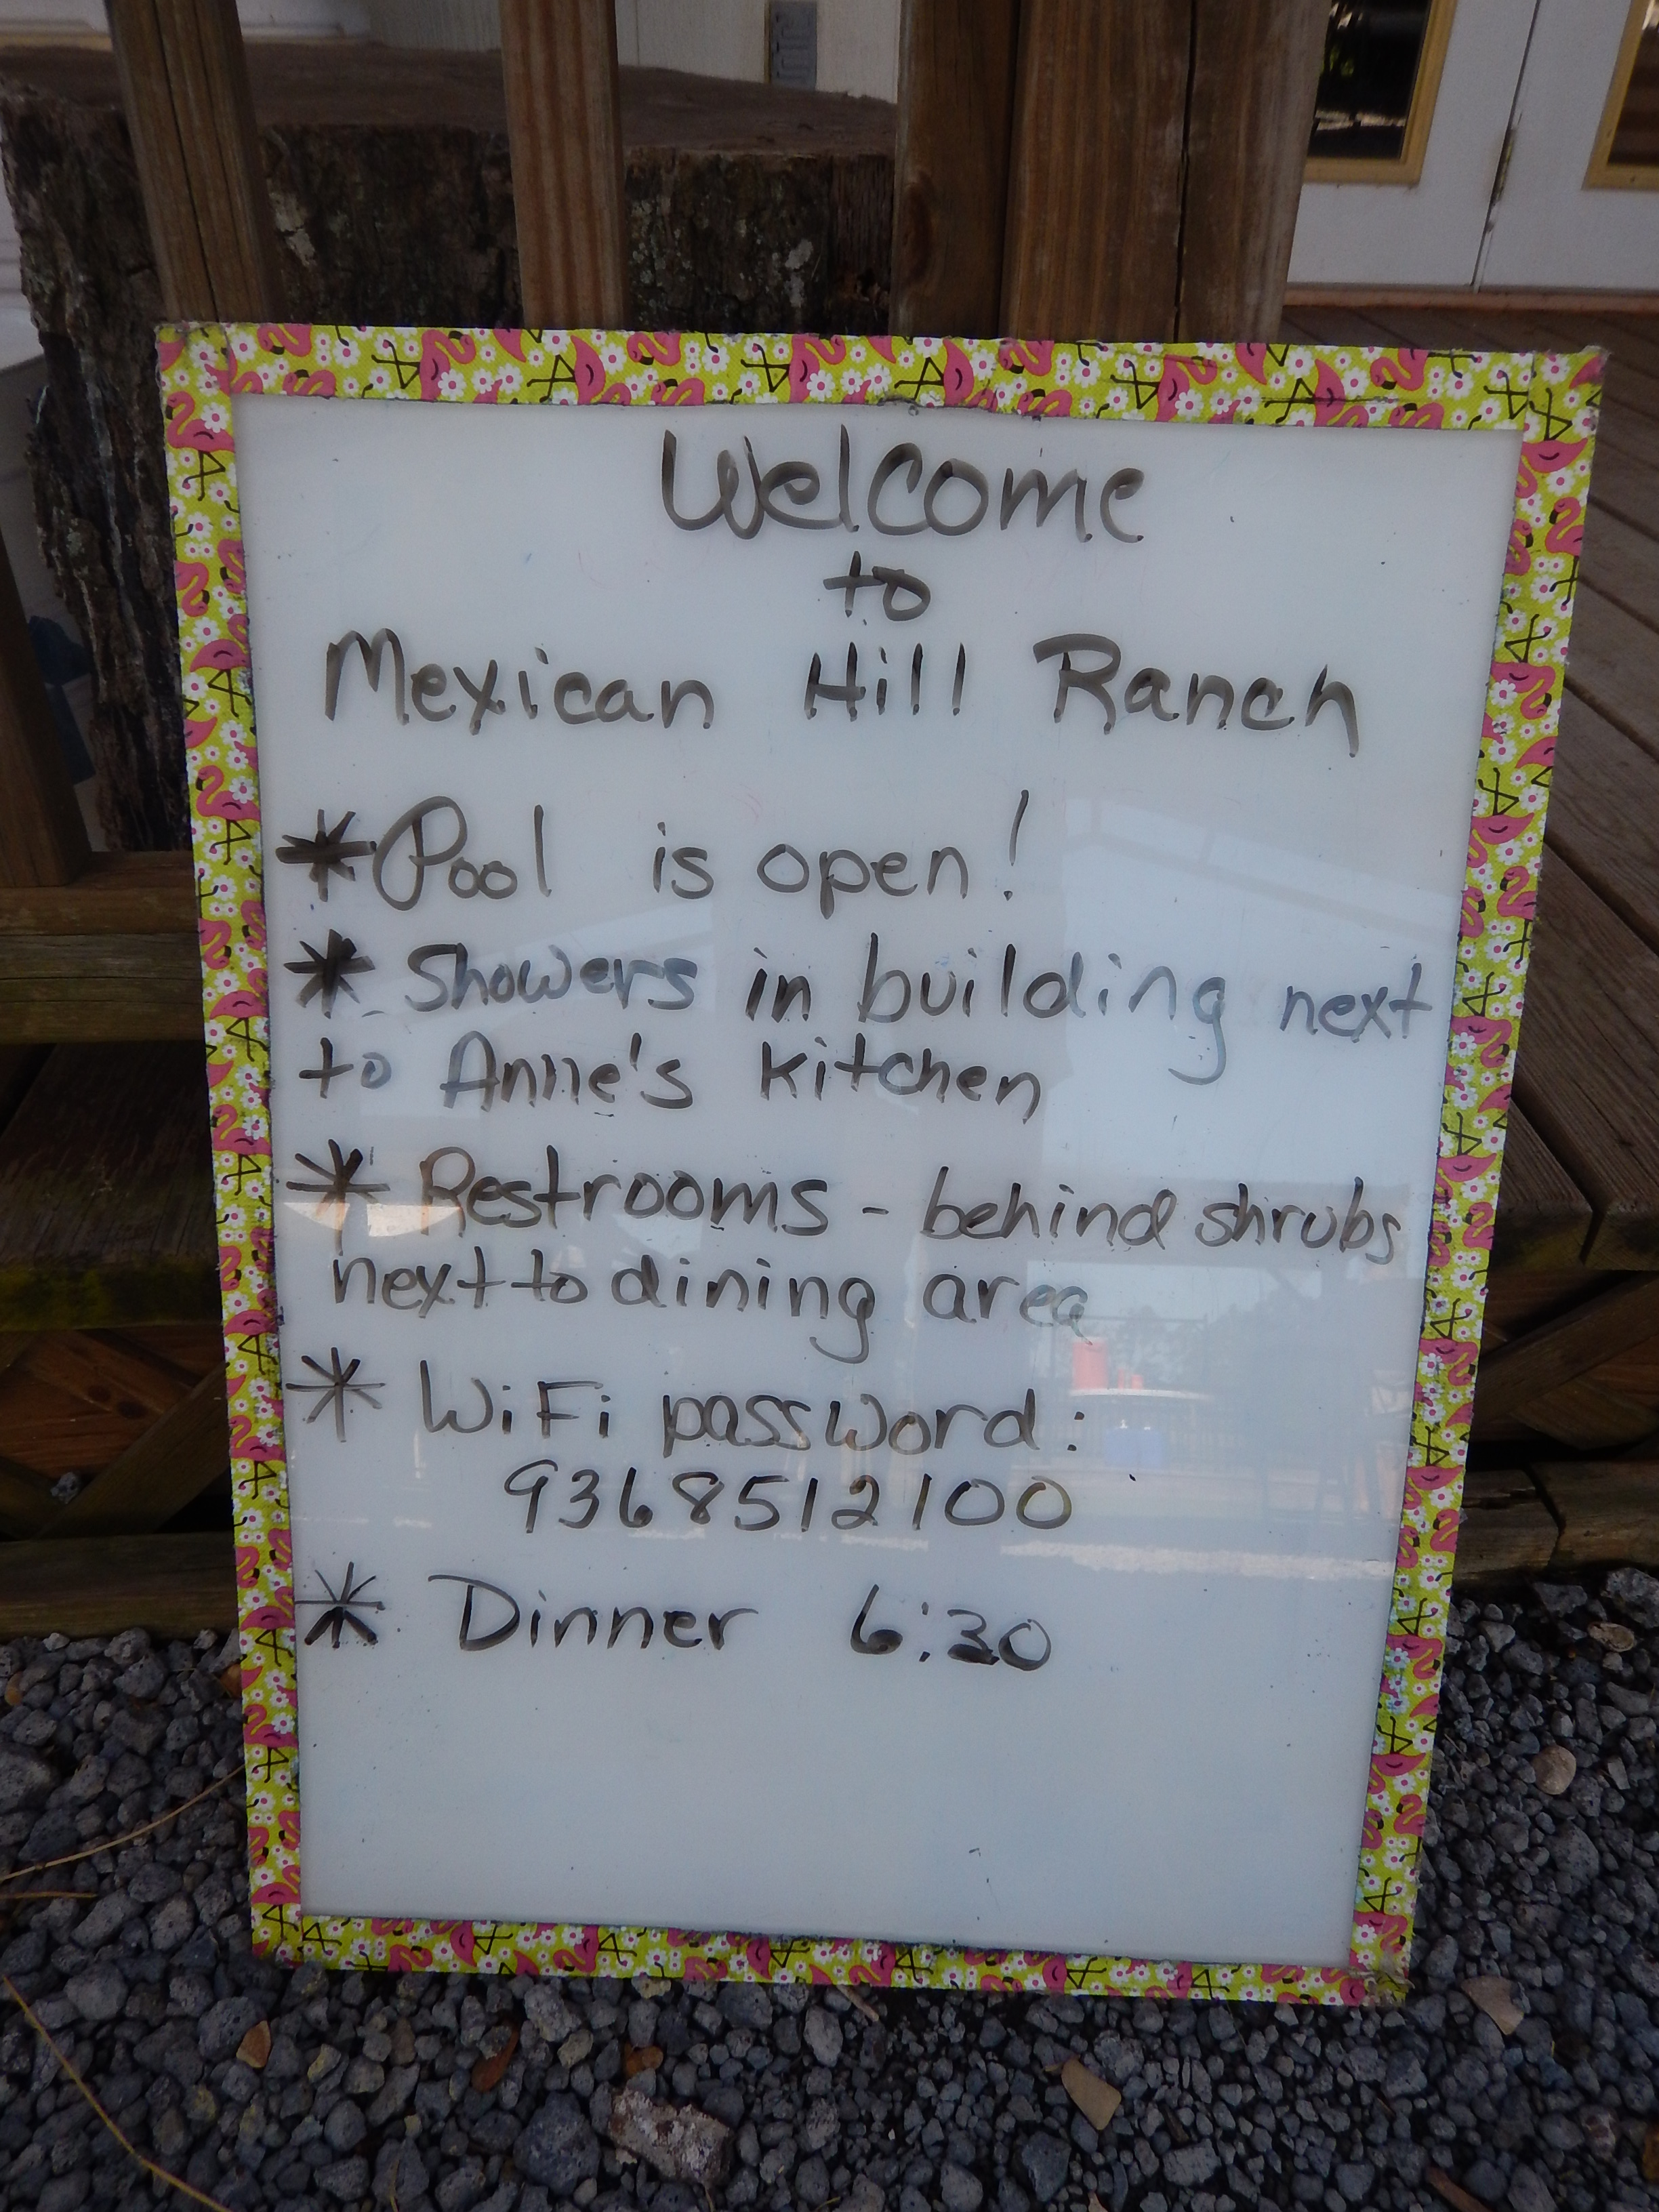 Welcome
to
Mexican Hill Ranch
* Pool is open!
* Showers in building next
to Anne's kitchen
* Restrooms - behind shrubs
next to dining area
* WiFi password:
9368512100
* Dinner 6:30